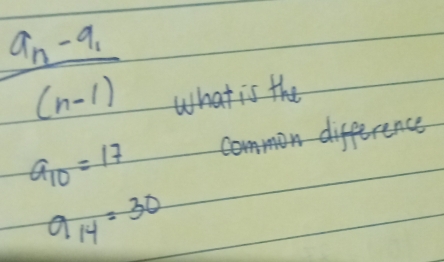 aₙ - a₁
(n-1) What is the
common difference
a₁₀ = 17
a₁₄ = 30